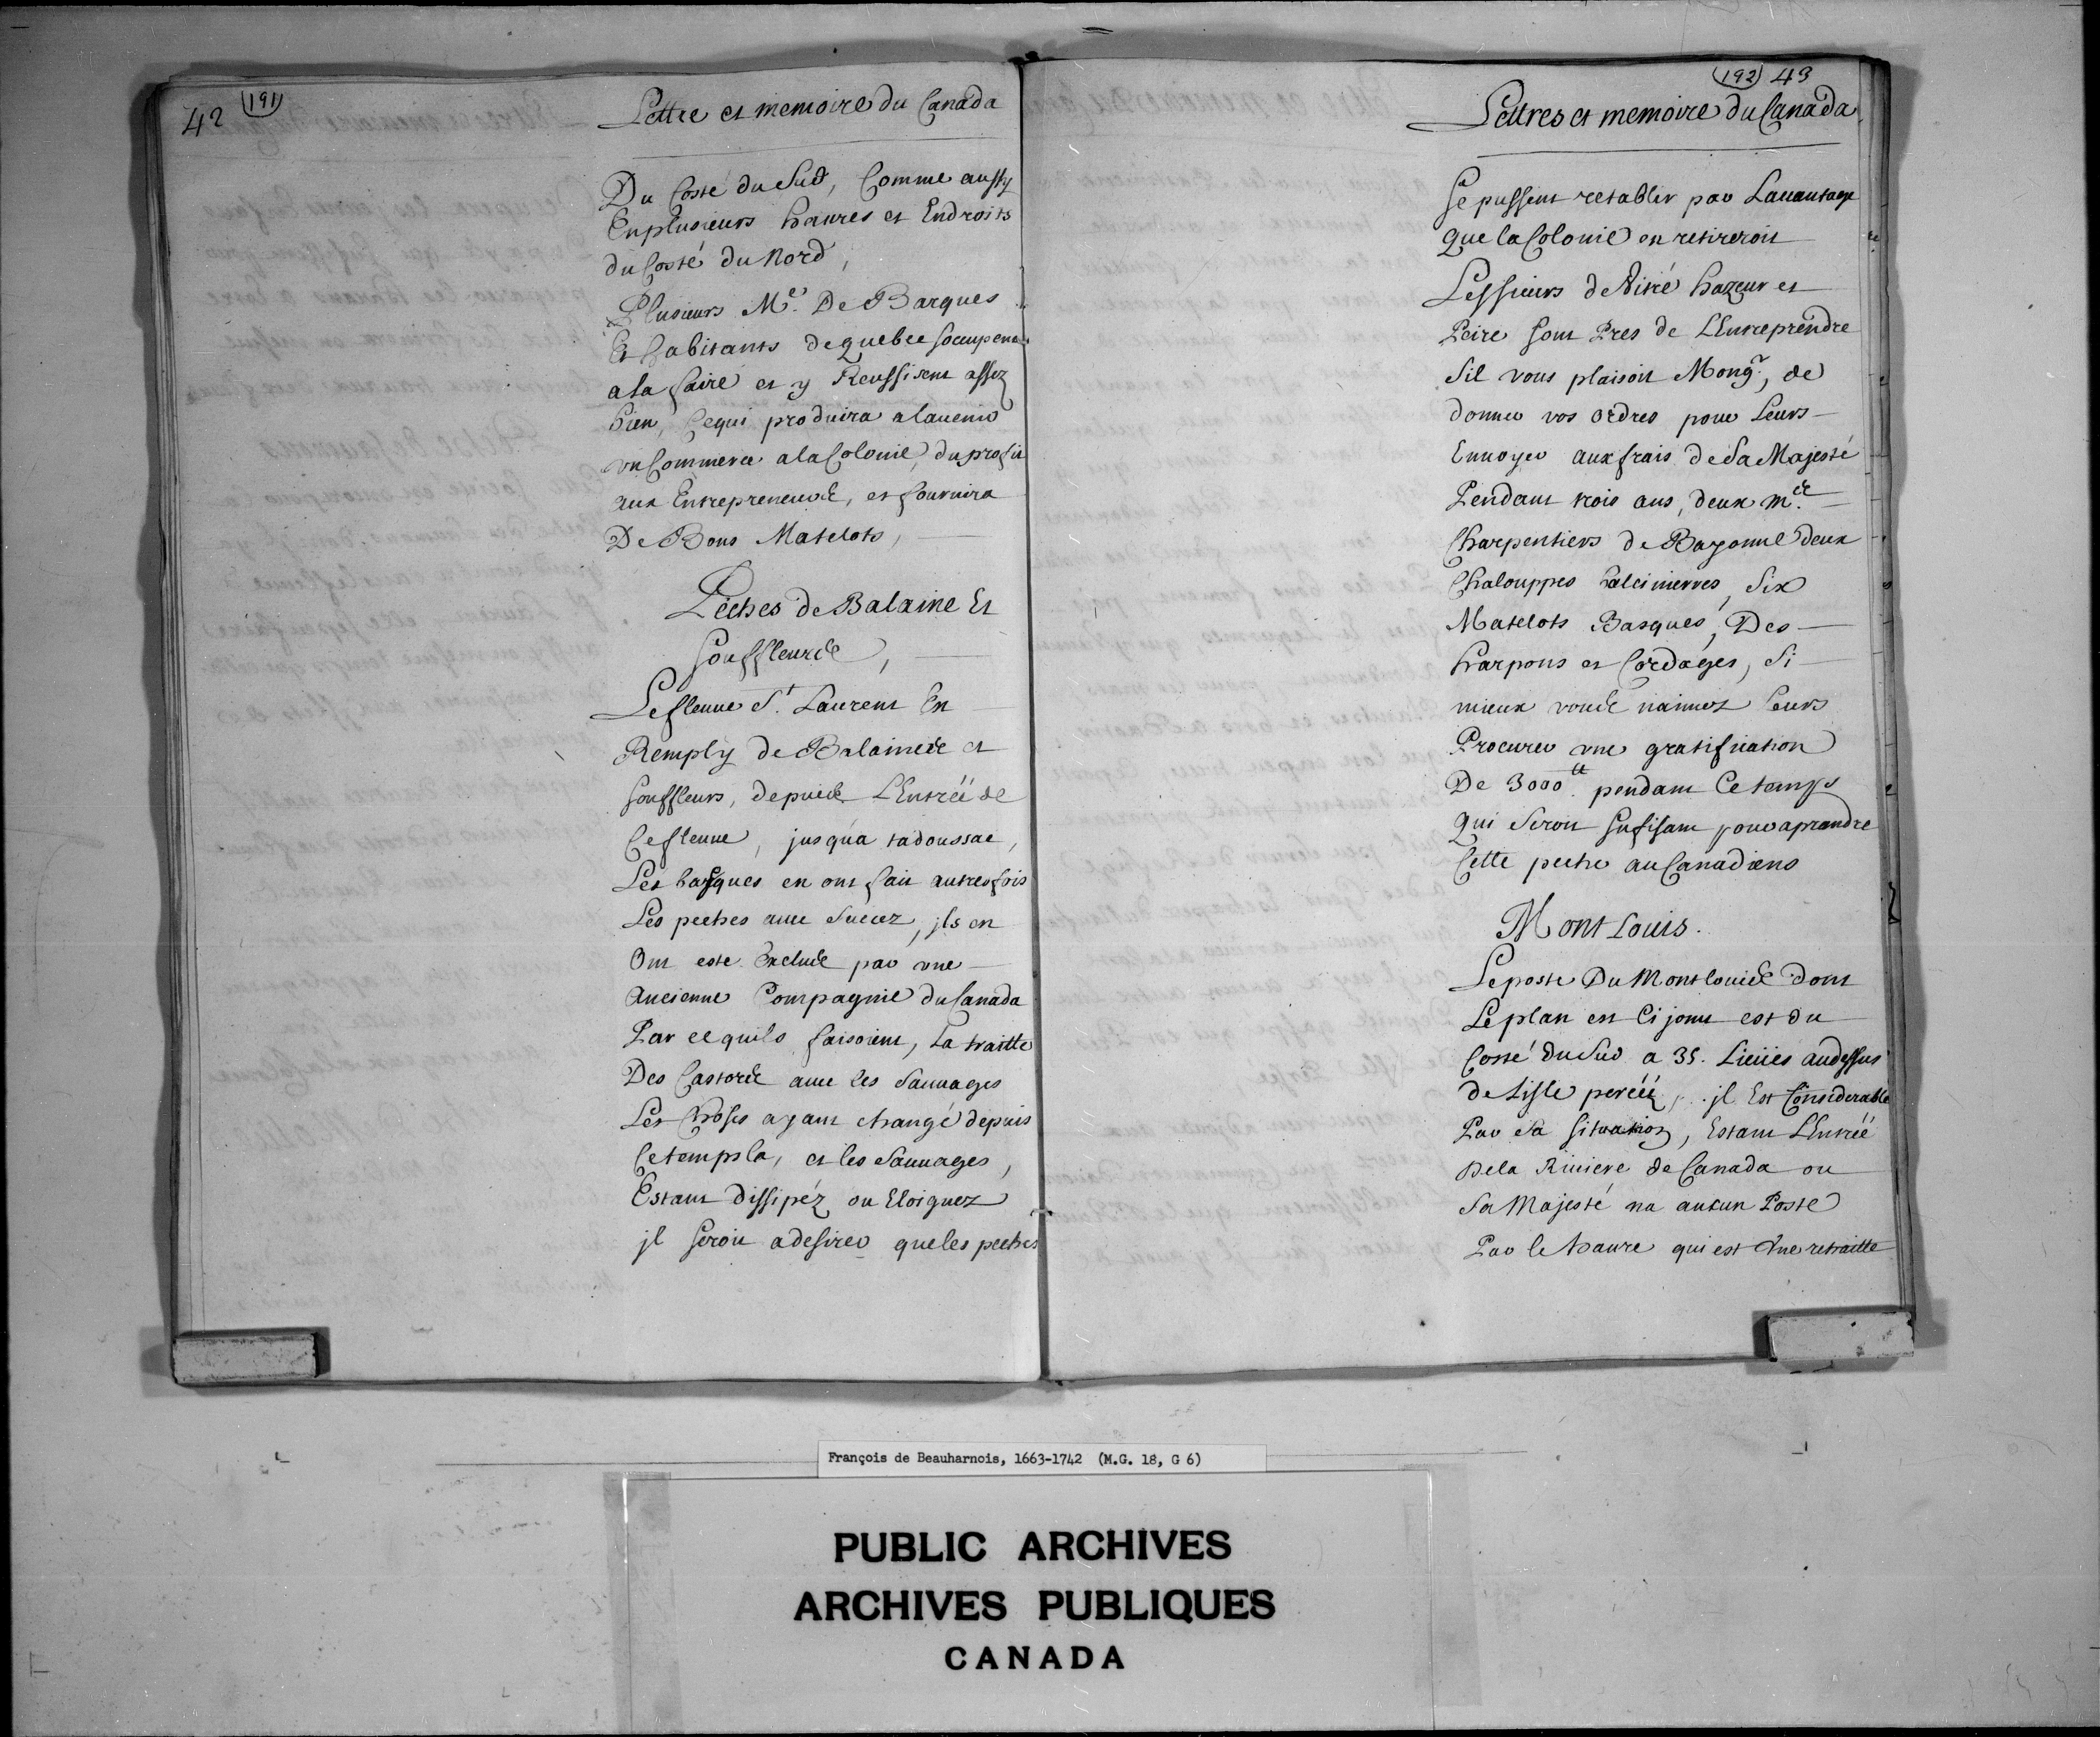 42 (191)
Lettre et memoire du Canada
Du Costé du Sud, Comme aussy
Enplusieurs havres et Endroits
du Costé du Nord,
Plusieurs Mes. De Barques
Et habitants de quebec soccupent
a la faire et y Reussisent assez
bien, Cequi produira alauenir
vnCommerce alaColonie, duprofit
aux Entrepreneurs, et fournira
De Bons Matelots,
Peches de Balaine Et
Souffleurs,
Lefleuue St. Laurent En
Remply de Balaines et
souffleurs, depuis LEntréé de
Cefleuue, jusqua tadoussac,
Les basques en ont fait autresfois
Les peches auec Succez, jls en
Ont esté Exclus par vne
Ancienne Compagnie duCanada
Par cequils faisoient, La traitte
Des Castors auec les Sauuages
Les Choses ayant changé depuis
Cetempsla, et les Sauuages,
Estant dissipéz ou Eloignez
jl seroit adesirer queles peches
(192) 43
Lettres et memoire duCanada
Se pussent retablir par Lauantage
Que laColonie en retireroit
Lessieurs deViné hazeur et
Peire sont Pres de LEntreprendre
Sil vous plaisoit Mongr., de
donner vos ordres pour Leurs
Enuoyer aux frais de Sa Majesté
Pendant trois ans, deux mes.
Charpentiers de Bayonne deux
Chalouppes balcinieres, Six
Matelots Basques, Des
harpons et Cordages, Si
mieux vous naimez Leurs
Procurer vne gratification
De 3000tt. pendant Cetemps
Qui Seroit Sufisant pouraprandre
Cette peche auCanadiens
Mont Louis.
Leposte Du Montlouis dont
Leplan est Cijoint est du
Costé duSud a 35. Lieües audessus
de Lisle percéé, jl Est Considerable
Par Sa Situation, Estant LEntréé
Dela Riuiere de Canada ou
Sa Majesté na aucun Poste
Par le haure qui est Vne retraitte
François de Beauharnois, 1663-1742 (M.G. 18, G 6)
PUBLIC ARCHIVES
ARCHIVES PUBLIQUES
CANADA